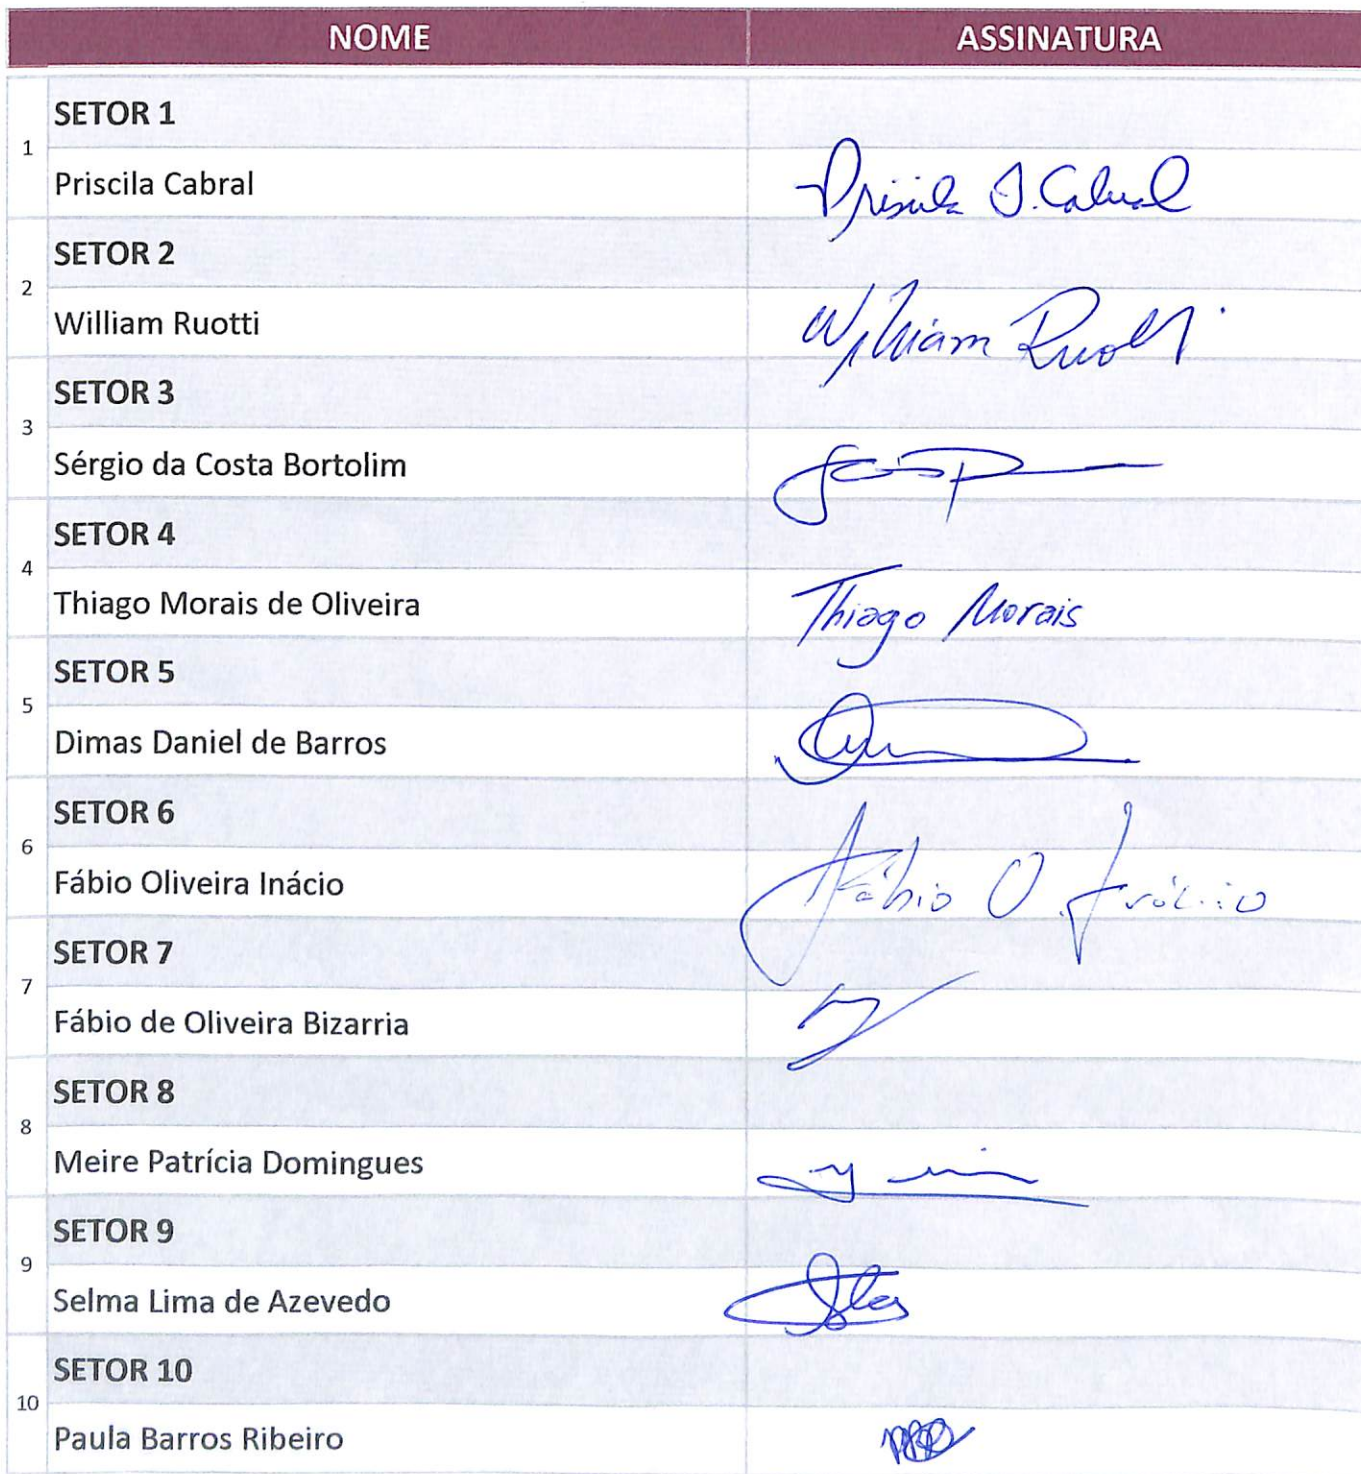 NOME ASSINATURA
SETOR 1
1
Priscila Cabral Priscila J. Cabral
SETOR 2
2
William Ruotti William Ruotti
SETOR 3
3
Sérgio da Costa Bortolim
SETOR 4
4
Thiago Morais de Oliveira Thiago Morais
SETOR 5
5
Dimas Daniel de Barros
SETOR 6
6
Fábio Oliveira Inácio Fábio O. Inácio
SETOR 7
7
Fábio de Oliveira Bizarria
SETOR 8
8
Meire Patrícia Domingues
SETOR 9
9
Selma Lima de Azevedo
SETOR 10
10
Paula Barros Ribeiro